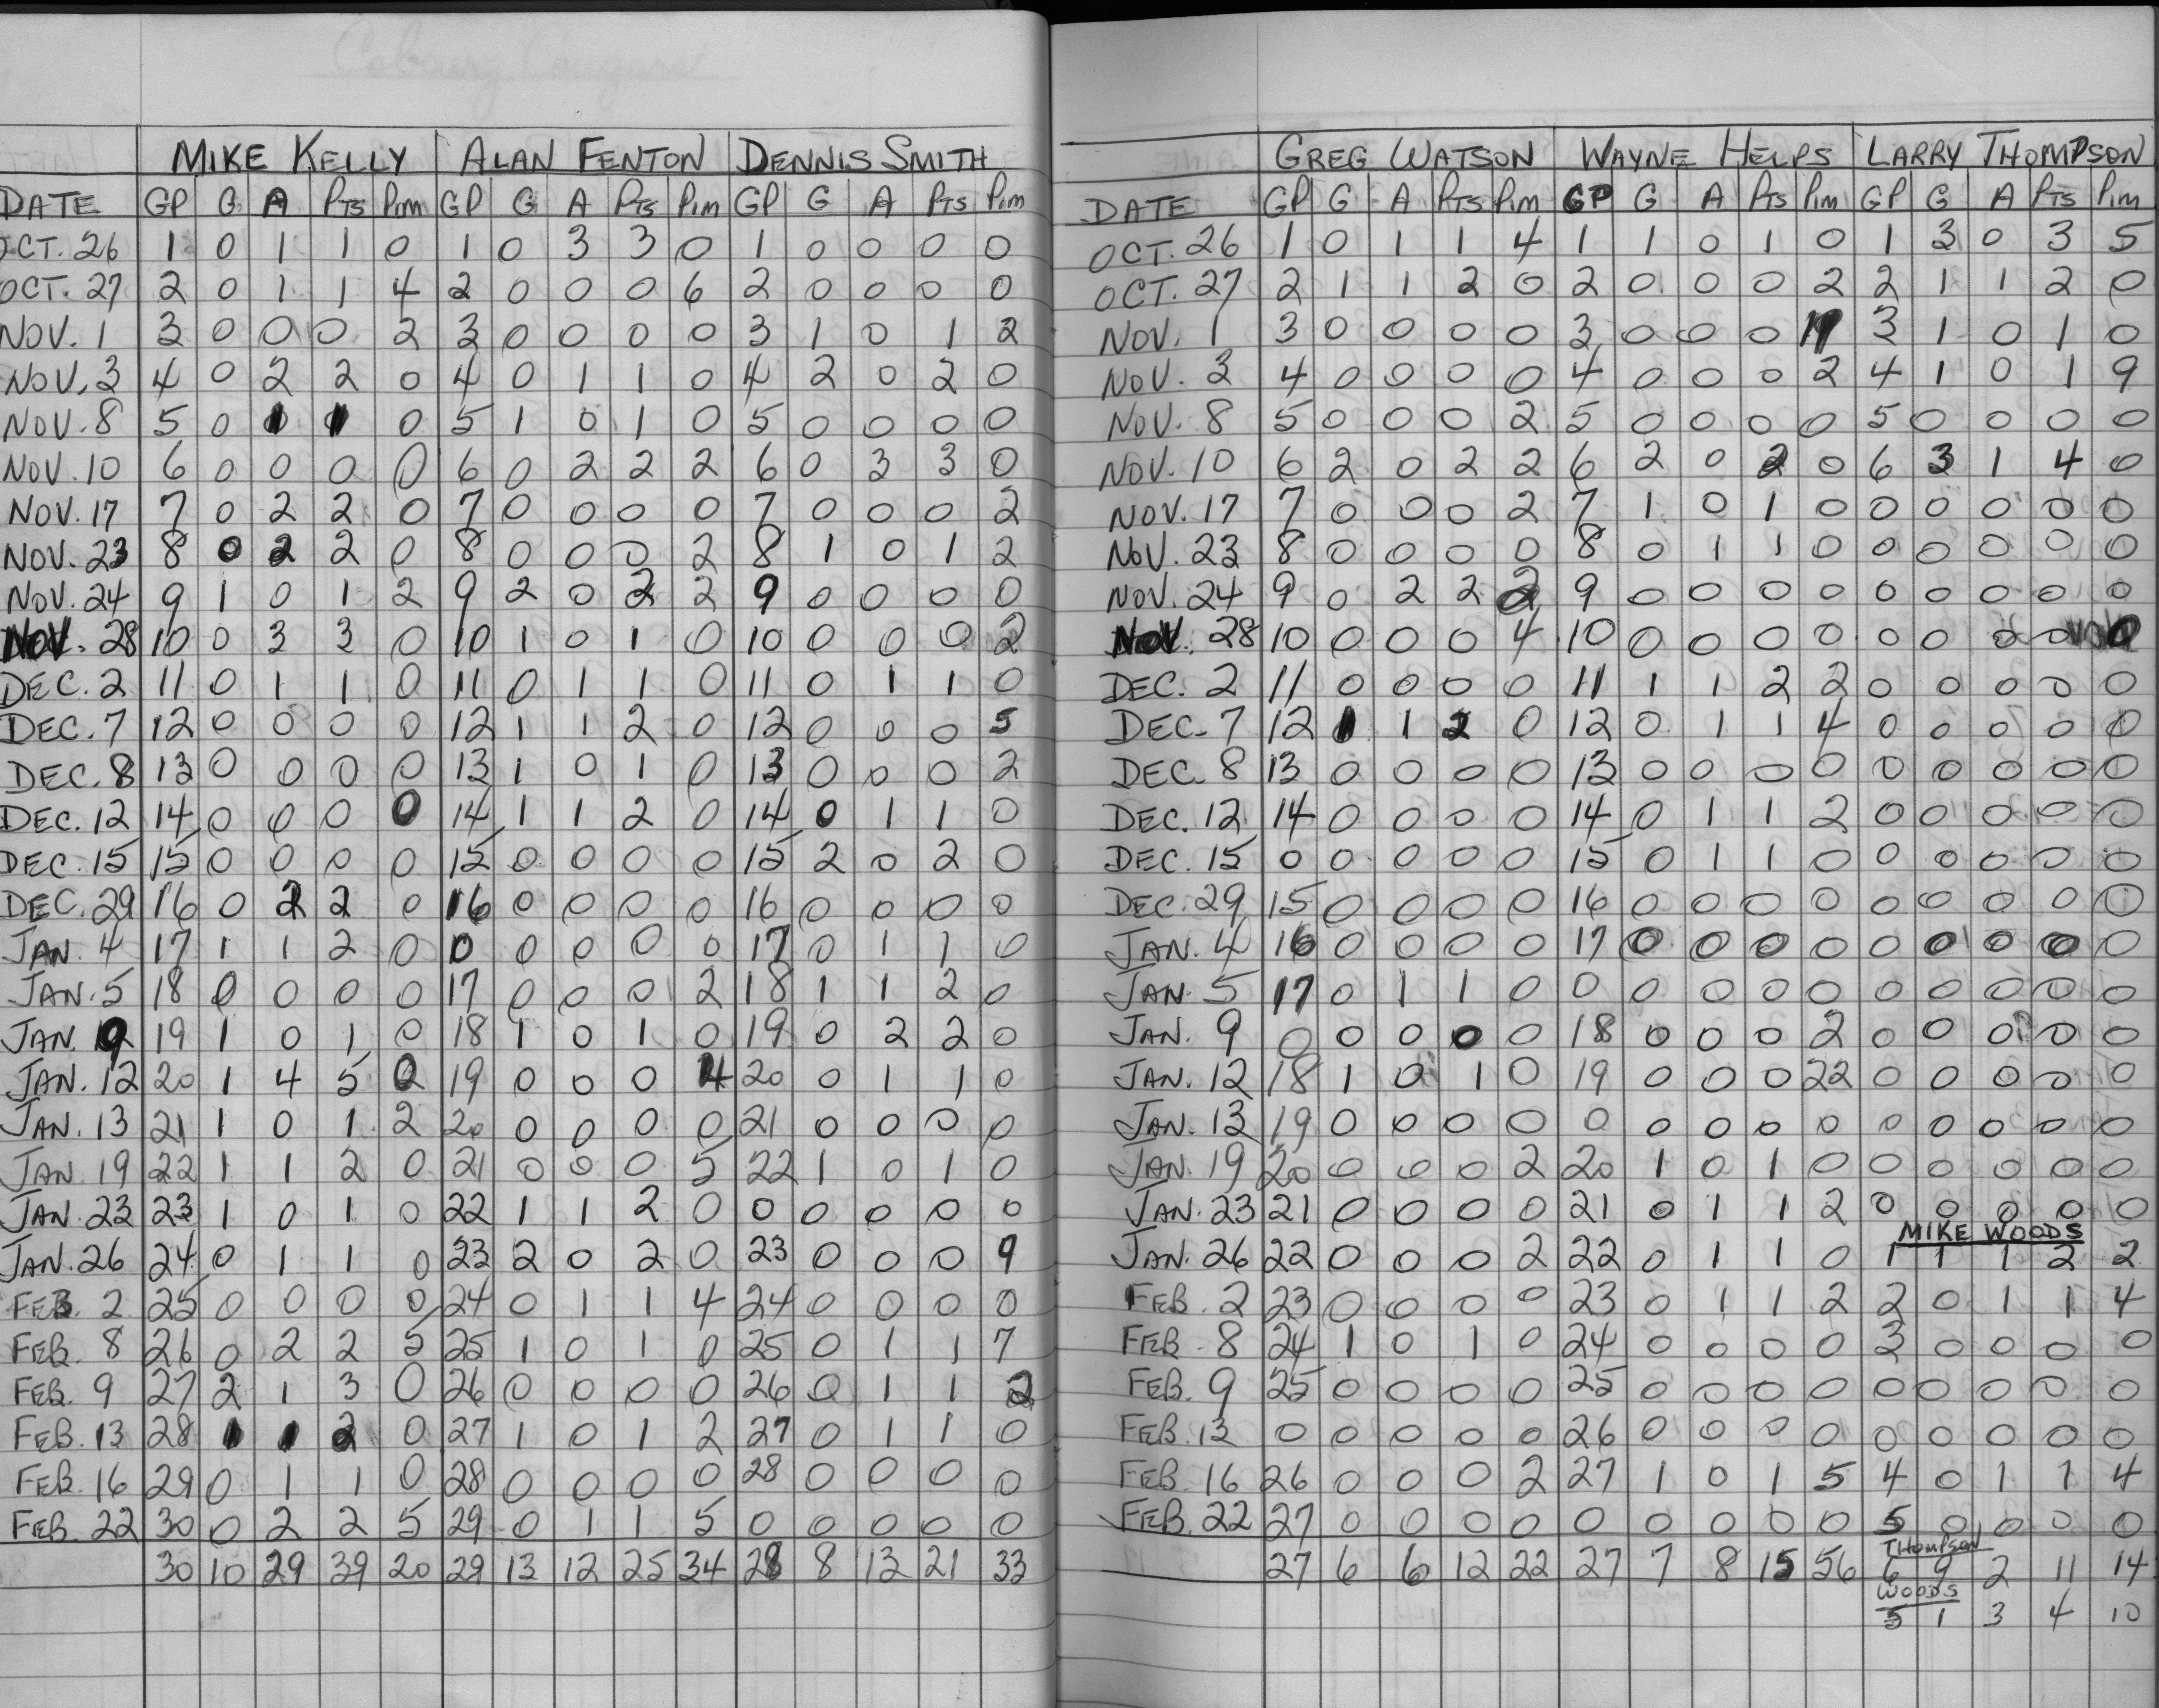 Cobourg Cougars
MIKE KELLY ALAN FENTON DENNIS SMITH
DATE GP G A PTS PIM GP G A PTS PIM GP G A PTS PIM
OCT. 26 1 0 1 1 0 1 0 3 3 0 1 0 0 0 0
OCT. 27 2 0 1 1 4 2 0 0 0 6 2 0 0 0 0
NOV. 1 3 0 0 0 2 3 0 0 0 0 3 1 0 1 2
NOV. 3 4 0 2 2 0 4 0 1 1 0 4 2 0 2 0
NOV. 8 5 0 1 1 0 5 1 0 1 0 5 0 0 0 0
NOV. 10 6 0 0 0 0 6 0 2 2 2 6 0 3 3 0
NOV. 17 7 0 2 2 0 7 0 0 0 0 7 0 0 0 2
NOV. 23 8 0 2 2 0 8 0 0 0 2 8 1 0 1 2
NOV. 24 9 1 0 1 2 9 2 0 2 2 9 0 0 0 0
NOV. 28 10 0 3 3 0 10 1 0 1 0 10 0 0 0 2
DEC. 2 11 0 1 1 0 11 0 1 1 0 11 0 1 1 0
DEC. 7 12 0 0 0 0 12 1 1 2 0 12 0 0 0 5
DEC. 8 13 0 0 0 0 13 1 0 1 0 13 0 0 0 2
DEC. 12 14 0 0 0 0 14 1 1 2 0 14 0 1 1 0
DEC. 15 15 0 0 0 0 15 0 0 0 0 15 2 0 2 0
DEC. 29 16 0 2 2 0 16 0 0 0 0 16 0 0 0 0
JAN. 4 17 1 1 2 0 0 0 0 0 0 17 0 1 1 0
JAN. 5 18 0 0 0 0 17 0 0 0 2 18 1 1 2 0
JAN. 9 19 1 0 1 0 18 1 0 1 0 19 0 2 2 0
JAN. 12 20 1 4 5 0 19 0 0 0 4 20 0 1 1 0
JAN. 13 21 1 0 1 2 20 0 0 0 0 21 0 0 0 0
JAN. 19 22 1 1 2 0 21 0 0 0 5 22 1 0 1 0
JAN. 23 23 1 0 1 0 22 1 1 2 0 0 0 0 0 0
JAN. 26 24 0 1 1 0 23 2 0 2 0 23 0 0 0 9
FEB. 2 25 0 0 0 0 24 0 1 1 4 24 0 0 0 0
FEB. 8 26 0 2 2 5 25 1 0 1 0 25 0 1 1 7
FEB. 9 27 2 1 3 0 26 0 0 0 0 26 0 1 1 2
FEB. 13 28 1 1 2 0 27 1 0 1 2 27 0 1 1 0
FEB. 16 29 0 1 1 0 28 0 0 0 0 28 0 0 0 0
FEB. 22 30 0 2 2 5 29 0 1 1 5 0 0 0 0 0
30 10 29 39 20 29 13 12 25 34 28 8 13 21 33
GREG WATSON WAYNE HELPS LARRY THOMPSON
DATE GP G A PTS PIM GP G A PTS PIM GP G A PTS PIM
OCT. 26 1 0 1 1 4 1 1 0 1 0 1 3 0 3 5
OCT. 27 2 1 1 2 0 2 0 0 0 2 2 1 1 2 0
NOV. 1 3 0 0 0 0 3 0 0 0 3 1 0 1 0
NOV. 3 4 0 0 0 0 4 0 0 0 2 4 1 0 1 9
NOV. 8 5 0 0 0 2 5 0 0 0 0 5 0 0 0 0
NOV. 10 6 2 0 2 2 6 2 0 2 0 6 3 1 4 0
NOV. 17 7 0 0 0 2 7 1 0 1 0 0 0 0 0 0
NOV. 23 8 0 0 0 0 8 0 1 1 0 0 0 0 0 0
NOV. 24 9 0 2 2 2 9 0 0 0 0 0 0 0 0 0
NOV. 28 10 0 0 0 4 10 0 0 0 0 0 0 0 0 0
DEC. 2 11 0 0 0 0 11 1 1 2 2 0 0 0 0 0
DEC. 7 12 1 1 2 0 12 0 1 1 4 0 0 0 0 0
DEC. 8 13 0 0 0 0 13 0 0 0 0 0 0 0 0 0
DEC. 12 14 0 0 0 0 14 0 1 1 2 0 0 0 0 0
DEC. 15 0 0 0 0 0 15 0 1 1 0 0 0 0 0 0
DEC. 29 15 0 0 0 0 16 0 0 0 0 0 0 0 0 0
JAN. 4 16 0 0 0 0 17 0 0 0 0 0 0 0 0 0
JAN. 5 17 0 1 1 0 0 0 0 0 0 0 0 0 0 0
JAN. 9 0 0 0 0 0 18 0 0 0 2 0 0 0 0 0
JAN. 12 18 1 0 1 0 19 0 0 0 22 0 0 0 0 0
JAN. 13 19 0 0 0 0 0 0 0 0 0 0 0 0 0 0
JAN. 19 20 0 0 0 2 20 1 0 1 0 0 0 0 0 0
JAN. 23 21 0 0 0 0 21 0 1 1 2 0 0 0 0 0
MIKE WOODS
JAN. 26 22 0 0 0 2 22 0 1 1 0 1 1 1 2 2
FEB. 2 23 0 0 0 0 23 0 1 1 2 2 0 1 1 4
FEB. 8 24 1 0 1 0 24 0 0 0 0 3 0 0 0 0
FEB. 9 25 0 0 0 0 25 0 0 0 0 0 0 0 0 0
FEB. 13 0 0 0 0 0 26 0 0 0 0 0 0 0 0 0
FEB. 16 26 0 0 0 2 27 1 0 1 5 4 0 1 1 4
FEB. 22 27 0 0 0 0 0 0 0 0 0 5 0 0 0 0
THOMPSON
27 6 6 12 22 27 7 8 15 56 6 9 2 11 14
WOODS
5 1 3 4 10